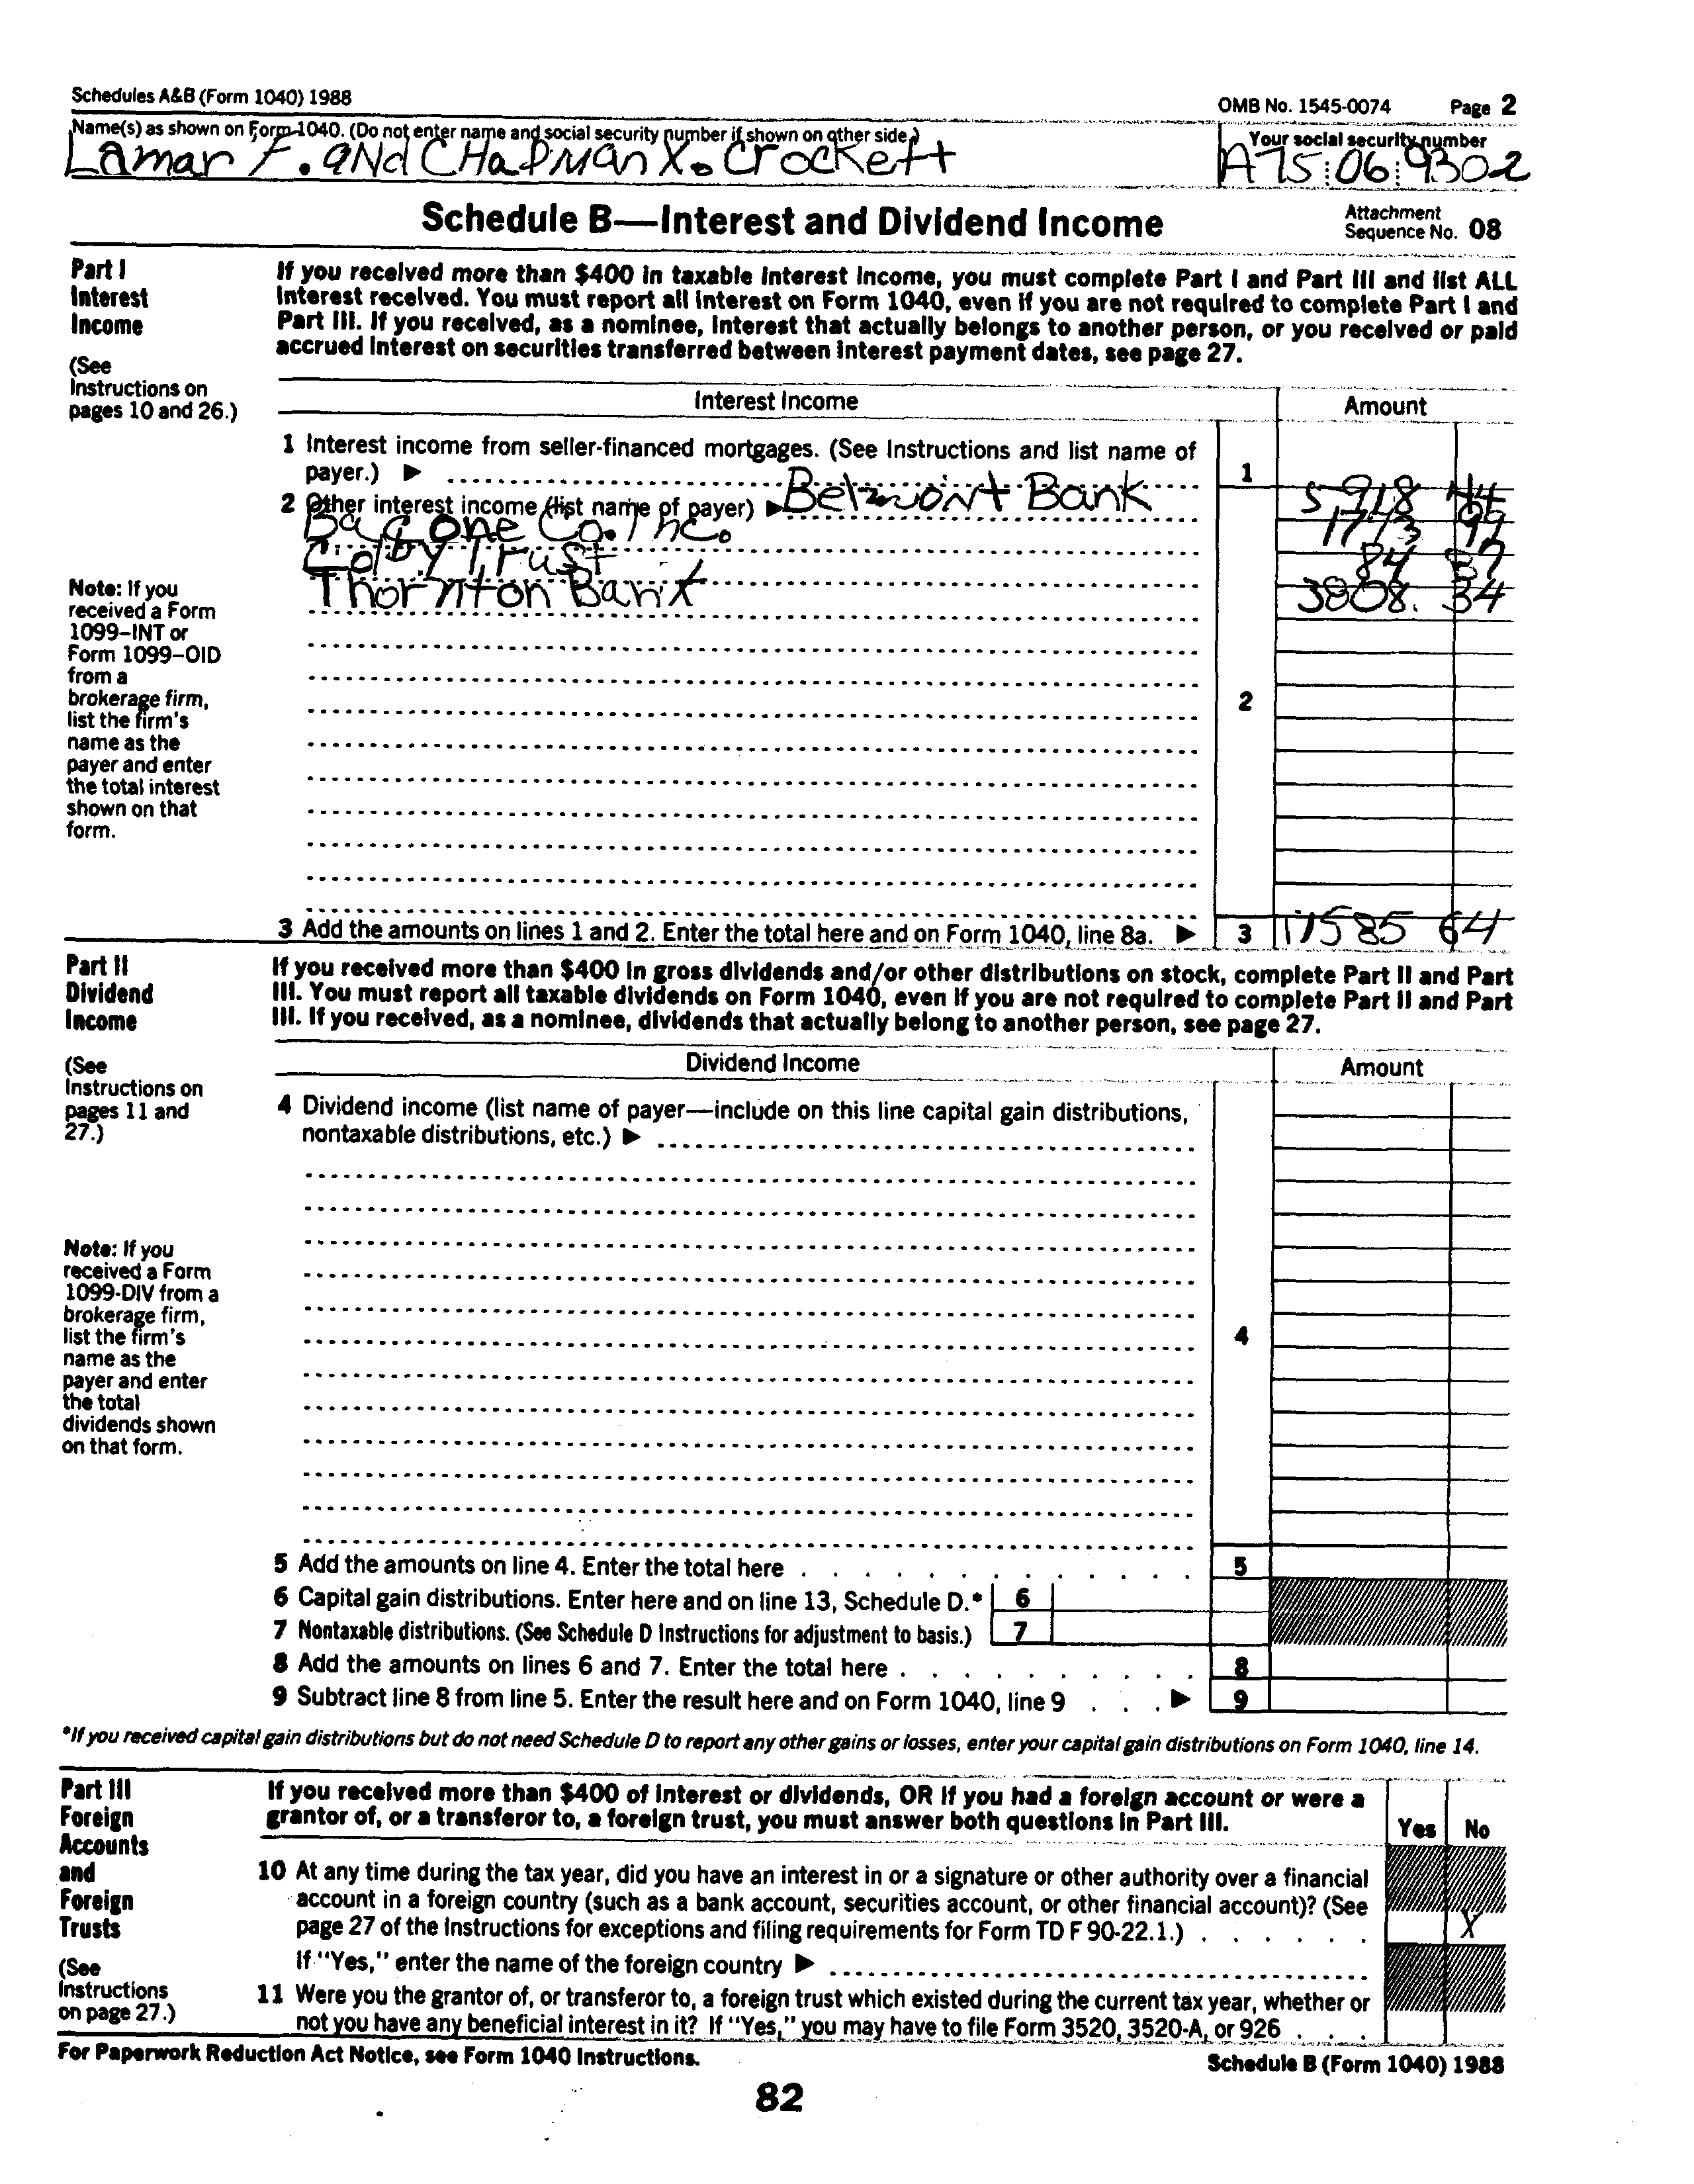 Schedules A&B (Form 1040) 1988
OMB No. 1545-0074 Page 2
Name(s) as shown on Form 1040. (Do not enter name and social security number if shown on other side.)
Lamar F. and CHAPMAN X. Crockett
Your social security number
A75 06 9302
Schedule B—Interest and Dividend Income
Attachment
Sequence No. 08
Part I
Interest
Income
(See
Instructions on
pages 10 and 26.)
If you received more than $400 in taxable interest income, you must complete Part I and Part III and list ALL
interest received. You must report all interest on Form 1040, even if you are not required to complete Part I and
Part III. If you received, as a nominee, interest that actually belongs to another person, or you received or paid
accrued interest on securities transferred between interest payment dates, see page 27.
Interest Income Amount
1 Interest income from seller-financed mortgages. (See Instructions and list name of
payer.) ▶ 1
2 Other interest income (list name of payer) ▶ Belmont Bank 5 918 44
one Co. Inc. 1773 99
Colby Trust 84 87
Thornton Bank 3808. 34
Note: If you
received a Form
1099–INT or
Form 1099–OID
from a
brokerage firm,
list the firm's
name as the
payer and enter
the total interest
shown on that
form.
2
3 Add the amounts on lines 1 and 2. Enter the total here and on Form 1040, line 8a. ▶ 3 11585 64
Part II
Dividend
Income
(See
Instructions on
pages 11 and
27.)
If you received more than $400 in gross dividends and/or other distributions on stock, complete Part II and Part
III. You must report all taxable dividends on Form 1040, even if you are not required to complete Part II and Part
III. If you received, as a nominee, dividends that actually belong to another person, see page 27.
Dividend Income Amount
4 Dividend income (list name of payer—include on this line capital gain distributions,
nontaxable distributions, etc.) ▶
Note: If you
received a Form
1099-DIV from a
brokerage firm,
list the firm's
name as the
payer and enter
the total
dividends shown
on that form.
4
5 Add the amounts on line 4. Enter the total here 5
6 Capital gain distributions. Enter here and on line 13, Schedule D.* 6
7 Nontaxable distributions. (See Schedule D Instructions for adjustment to basis.) 7
8 Add the amounts on lines 6 and 7. Enter the total here 8
9 Subtract line 8 from line 5. Enter the result here and on Form 1040, line 9 ▶ 9
*If you received capital gain distributions but do not need Schedule D to report any other gains or losses, enter your capital gain distributions on Form 1040, line 14.
Part III
Foreign
Accounts
and
Foreign
Trusts
(See
Instructions
on page 27.)
If you received more than $400 of interest or dividends, OR if you had a foreign account or were a
grantor of, or a transferor to, a foreign trust, you must answer both questions in Part III.
Yes No
10 At any time during the tax year, did you have an interest in or a signature or other authority over a financial
account in a foreign country (such as a bank account, securities account, or other financial account)? (See
page 27 of the Instructions for exceptions and filing requirements for Form TD F 90-22.1.) X
If "Yes," enter the name of the foreign country ▶
11 Were you the grantor of, or transferor to, a foreign trust which existed during the current tax year, whether or
not you have any beneficial interest in it? If "Yes," you may have to file Form 3520, 3520-A, or 926
For Paperwork Reduction Act Notice, see Form 1040 Instructions.
Schedule B (Form 1040) 1988
82